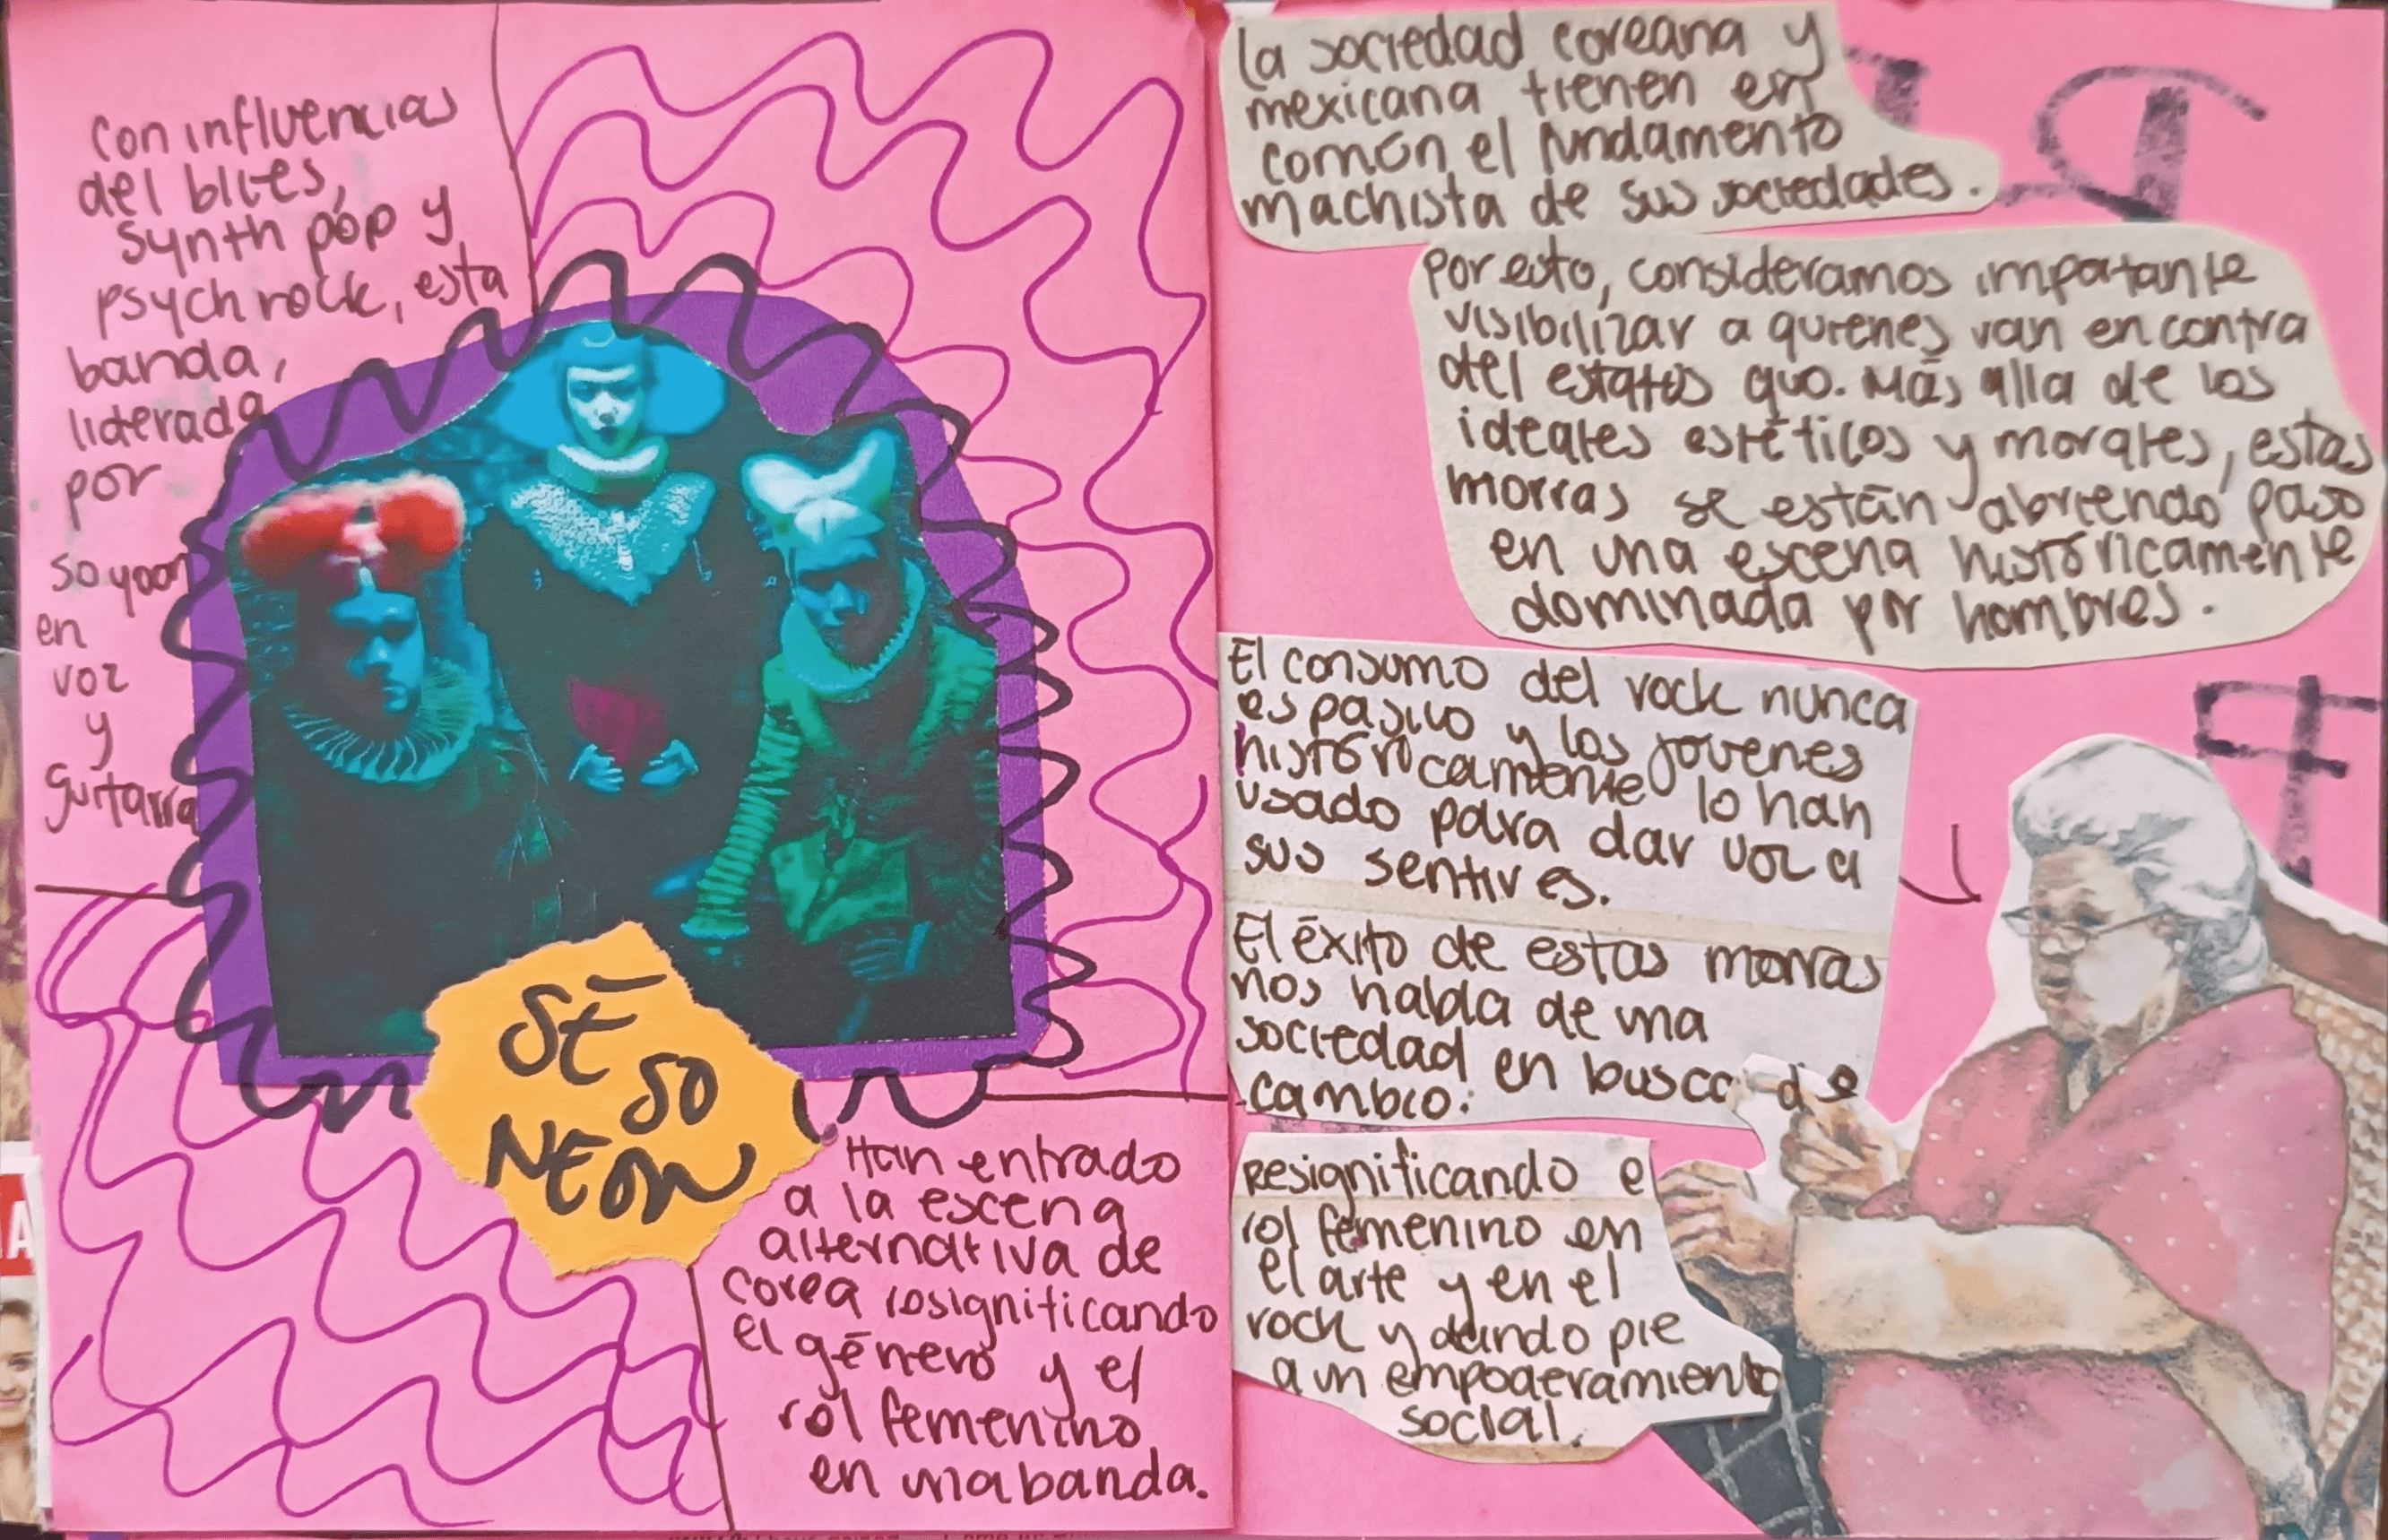 Con influencias
del blues,
synth pop y
psych rock, esta
banda,
liderada
por
so yoon
en
voz
y
guitarra
SE
SO
NEON
Han entrado
a la escena
alternativa de
Corea resignificando
el género y el
rol femenino
en una banda.
La sociedad coreana y
mexicana tienen en
común el fundamento
machista de sus sociedades.
Por esto, consideramos importante
visibilizar a quienes van en contra
del estatus quo. Más alla de los
ideales estéticos y morales, estas
morras se están abriendo paso
en una escena históricamente
dominada por hombres.
El consumo del rock nunca
es pasivo y los jovenes
históricamente lo han
usado para dar voz a
sus sentires.
El éxito de estas morras
nos habla de una
sociedad en busca de
cambio.
Resignificando e
rol femenino en
el arte y en el
rock y dando pie
a un empoderamiento
social.